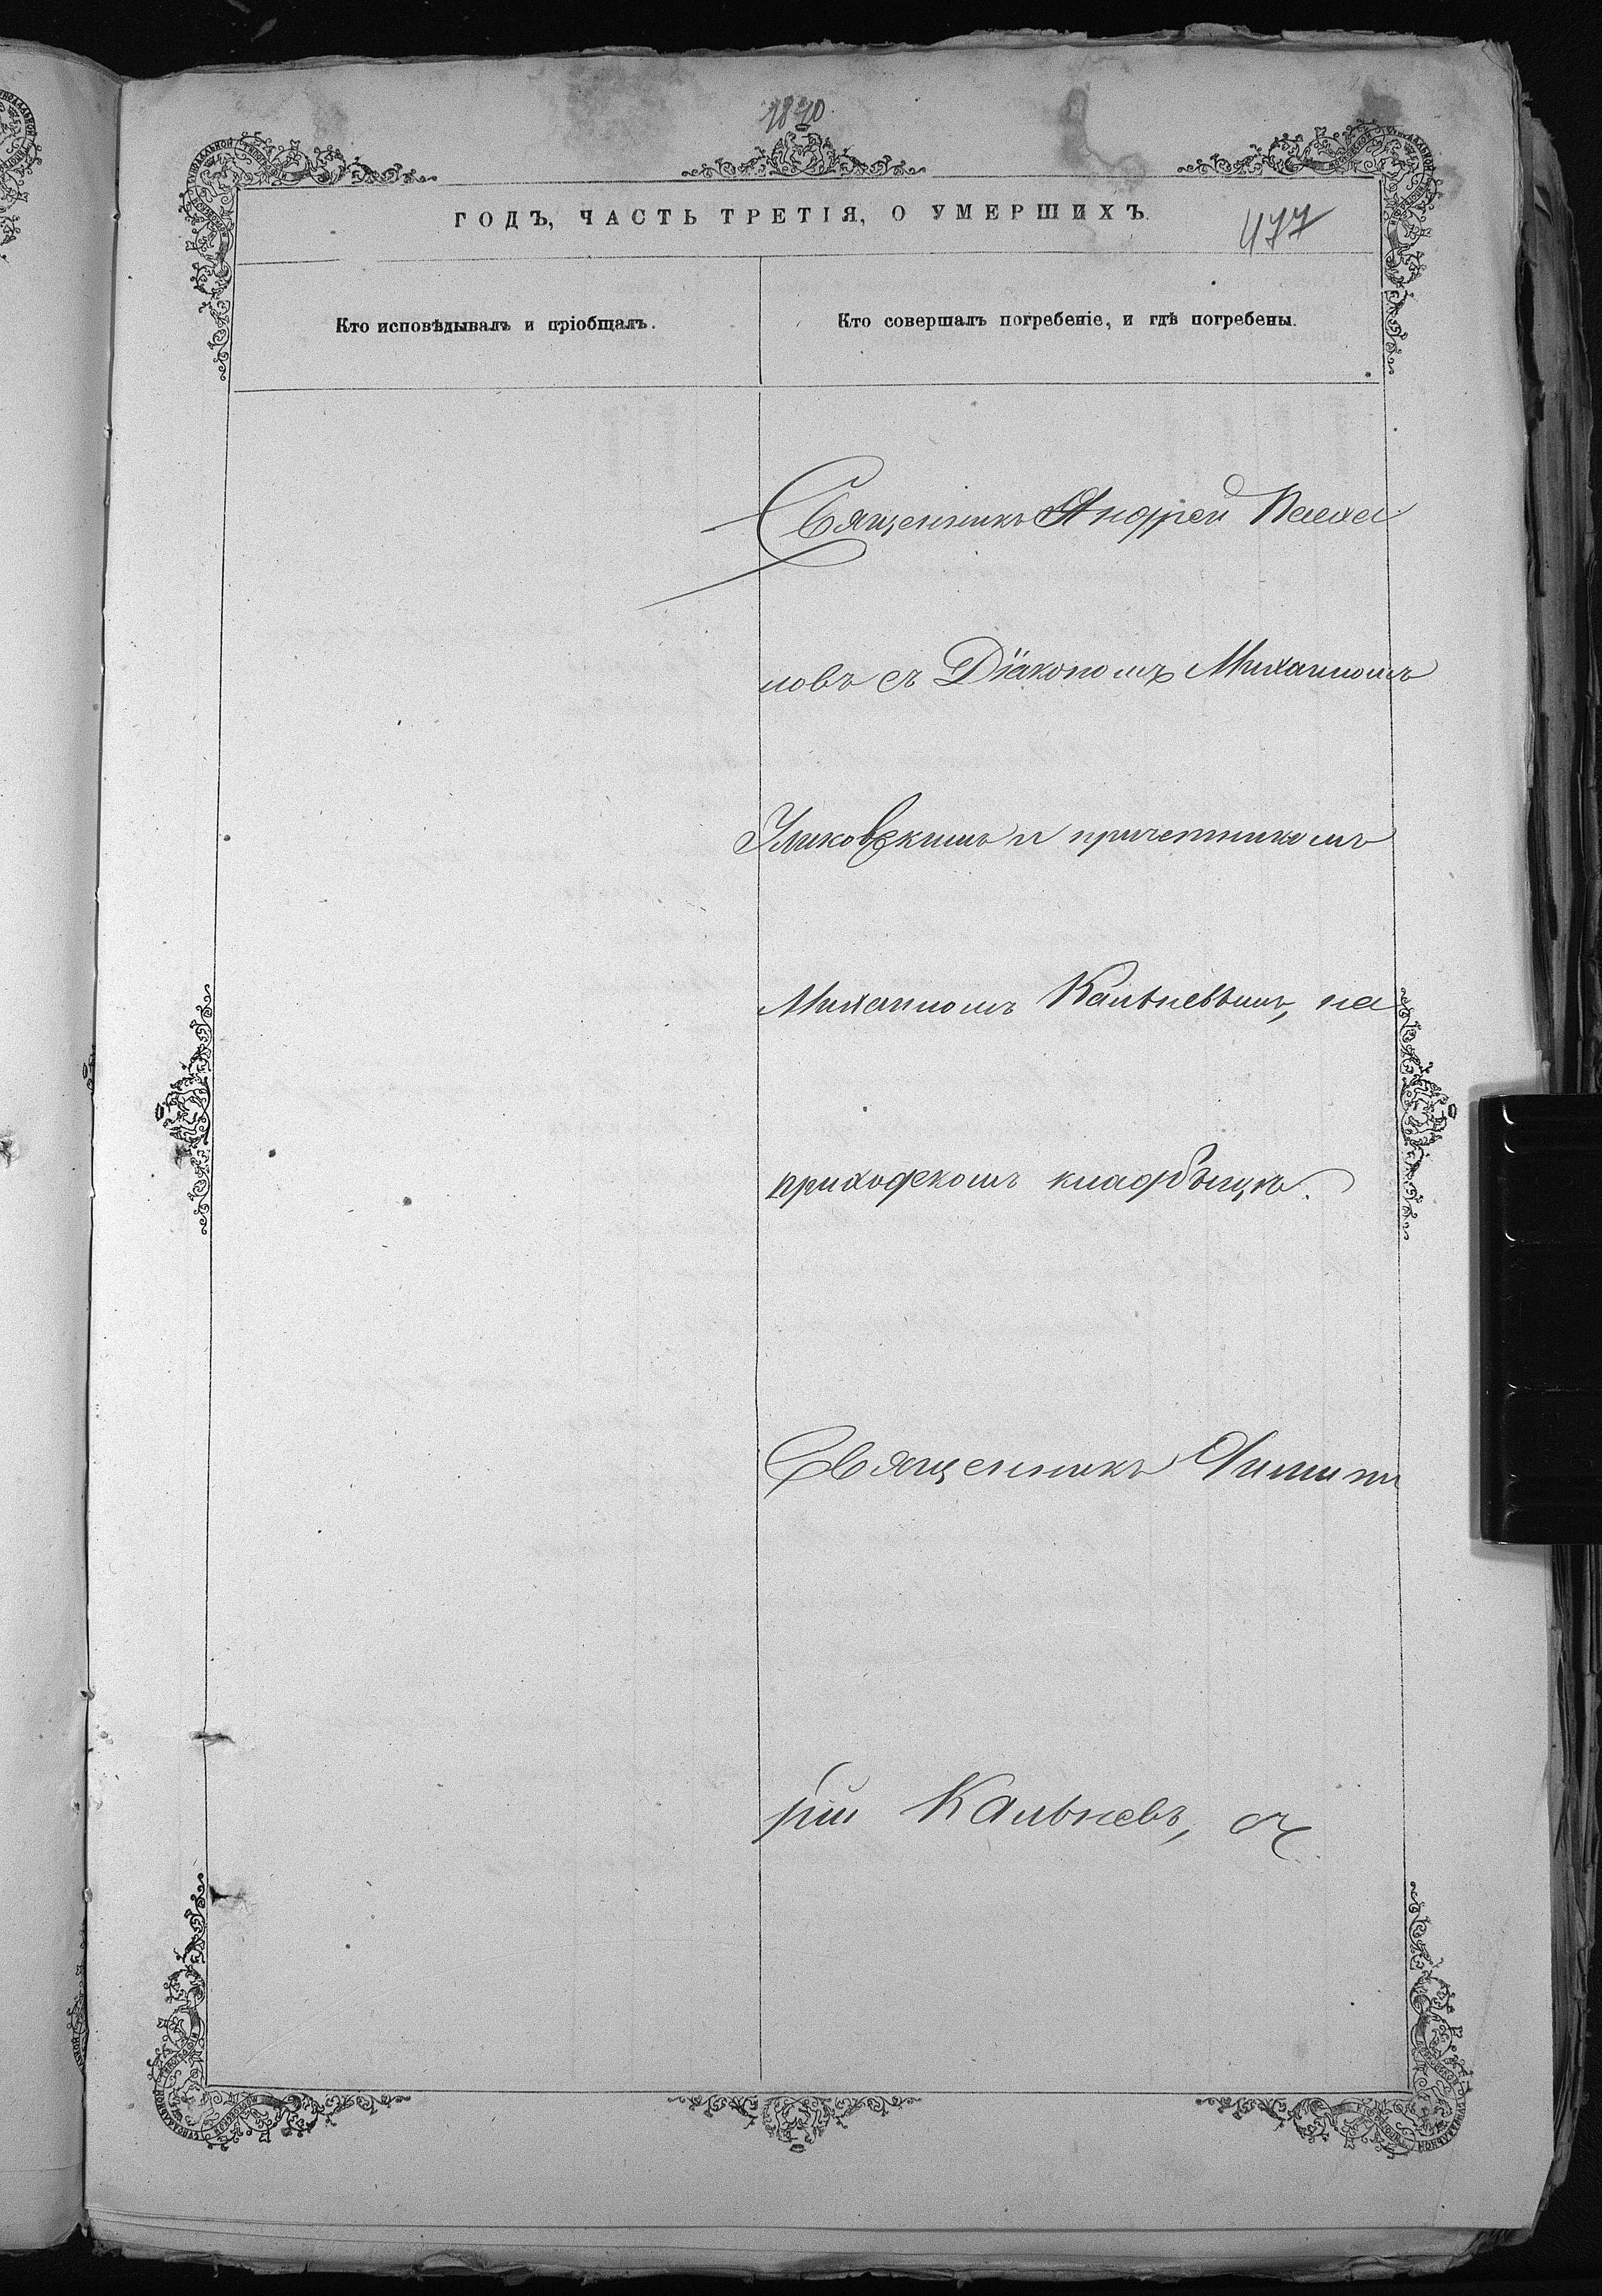 1870
ГОДЪ, ЧАСТЬ ТРЕТІЯ, О УМЕРШИХЪ.
477
Кто исповѣдывалъ и пріобщалъ.
Кто совершалъ погребеніе, и гдѣ погребены.
Священникъ Андрей
ловъ съ Діакономъ Михаиломъ
и причетникомъ
Михаиломъ Кальневымъ, на
приходскомъ кладбищѣ.
Священникъ Димит
рій Кальневъ, съ